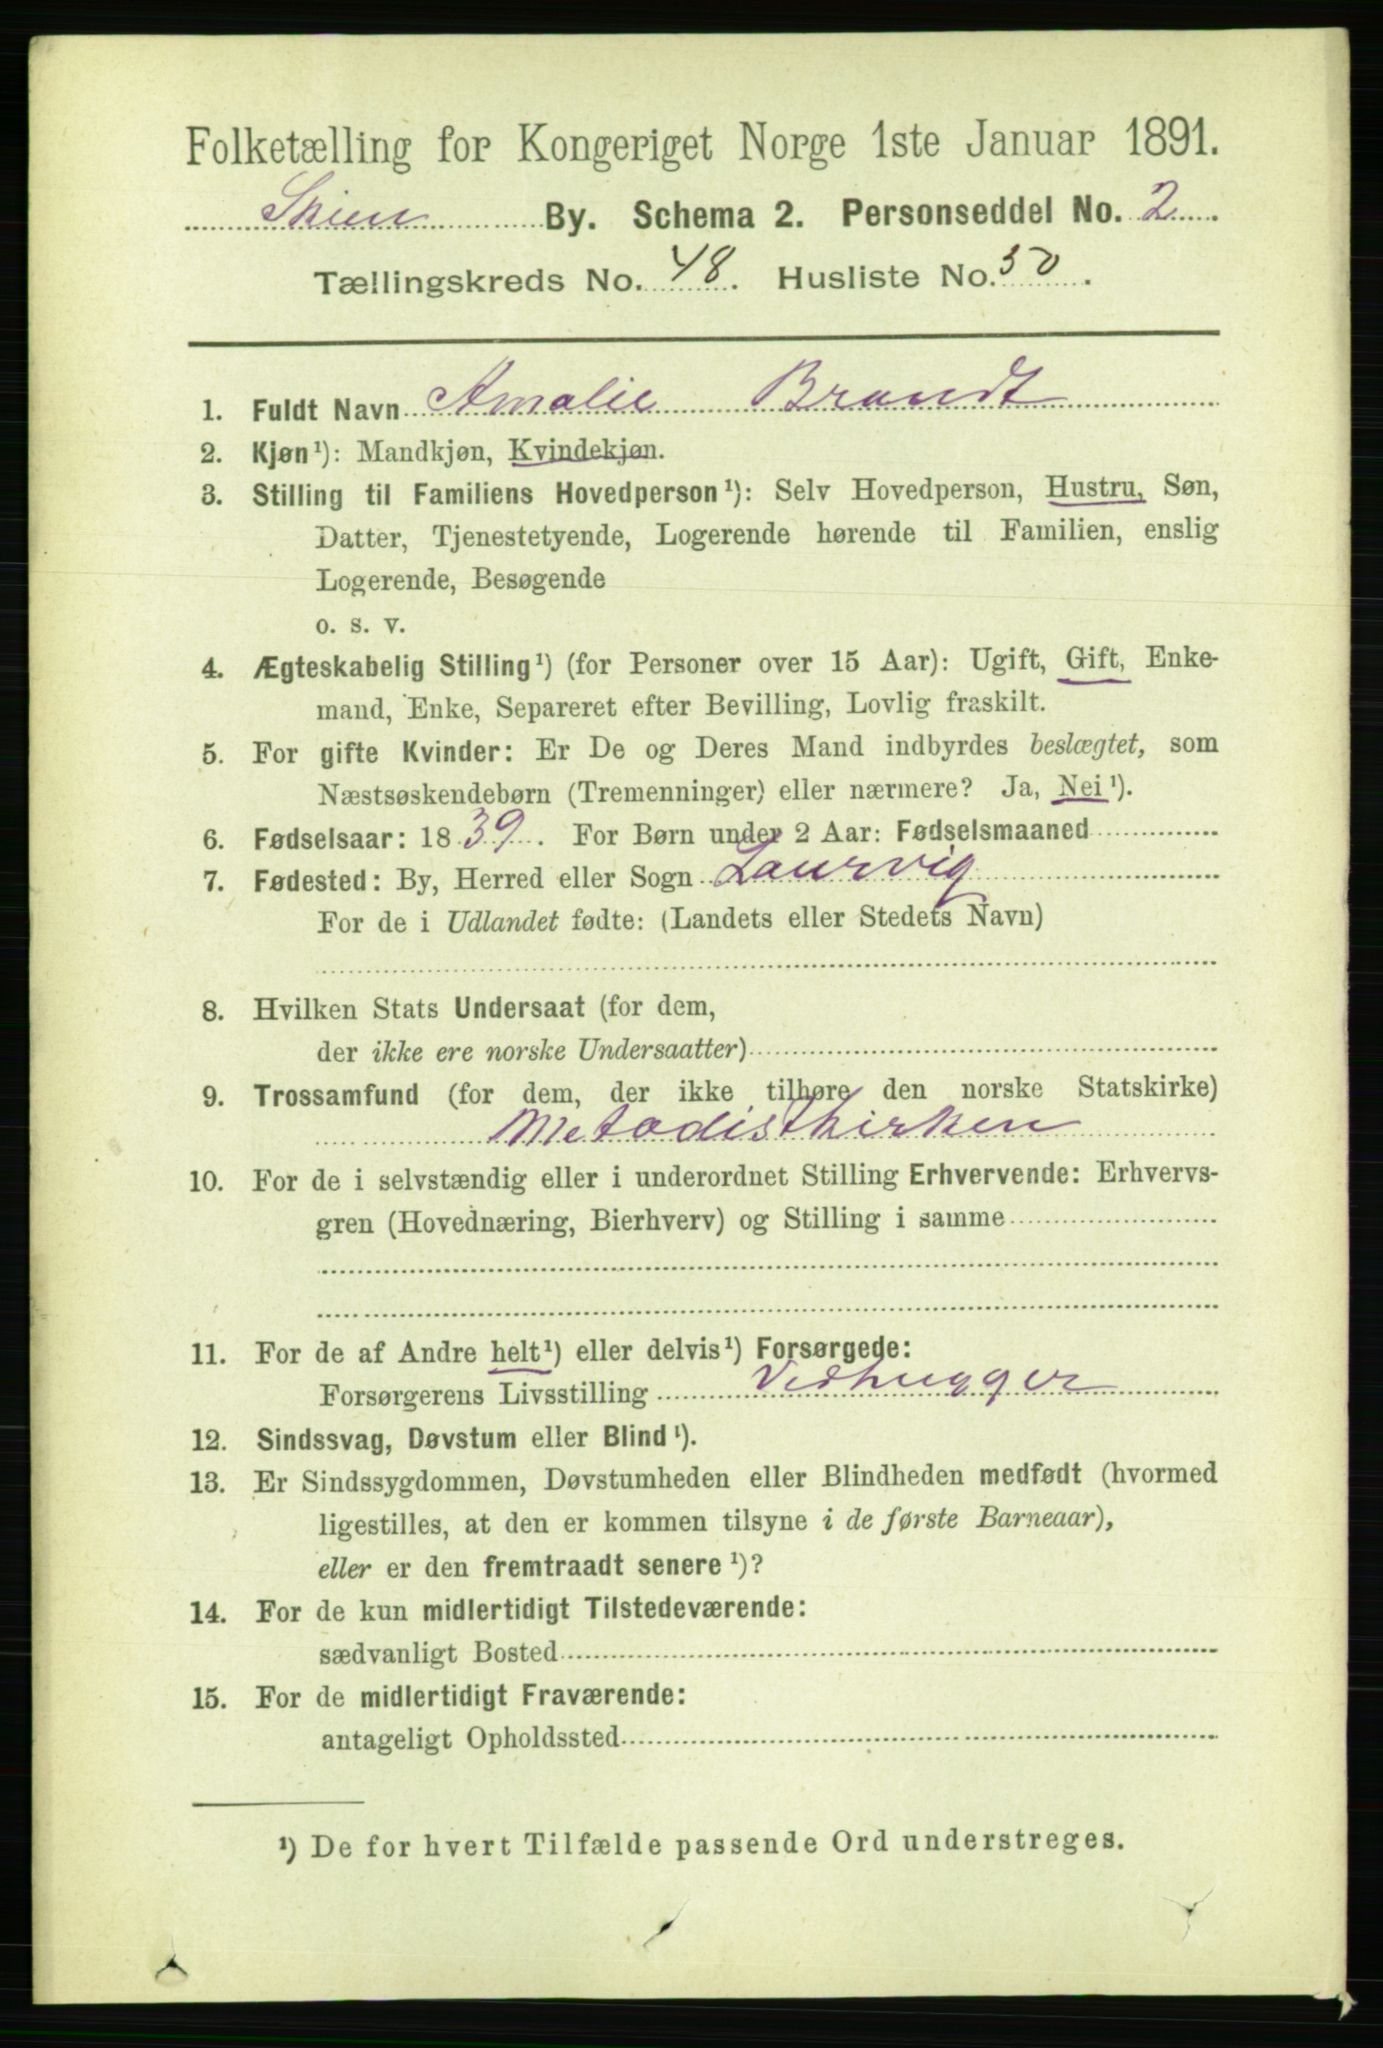 Folketælling for Kongeriget Norge 1ste Januar 1891.
Skien By. Schema 2. Personseddel No. 2.
Tællingskreds No. 48. Husliste No. 50.
1. Fuldt Navn Amalie Brandt
2. Kjøn¹): Mandkjøn, Kvindekjøn.
3. Stilling til Familiens Hovedperson¹): Selv Hovedperson, Hustru, Søn,
Datter, Tjenestetyende, Logerende hørende til Familien, enslig
Logerende, Besøgende
o. s. v.
4. Ægteskabelig Stilling¹) (for Personer over 15 Aar): Ugift, Gift, Enke-
mand, Enke, Separeret efter Bevilling, Lovlig fraskilt.
5. For gifte Kvinder: Er De og Deres Mand indbyrdes beslægtet, som
Næstsøskendebørn (Tremenninger) eller nærmere? Ja, Nei¹).
6. Fødselsaar: 1839. For Børn under 2 Aar: Fødselsmaaned
7. Fødested: By, Herred eller Sogn Laurvig
For de i Udlandet fødte: (Landets eller Stedets Navn)
8. Hvilken Stats Undersaat (for dem,
der ikke ere norske Undersaatter)
9. Trossamfund (for dem, der ikke tilhøre den norske Statskirke)
Metodistkirken
10. For de i selvstændig eller i underordnet Stilling Erhvervende: Erhvervs-
gren (Hovednæring, Bierhverv) og Stilling i samme
11. For de af Andre helt¹) eller delvis¹) Forsørgede:
Forsørgerens Livsstilling Vedhugger
12. Sindssvag, Døvstum eller Blind¹).
13. Er Sindssygdommen, Døvstumheden eller Blindheden medfødt (hvormed
ligestilles, at den er kommen tilsyne i de første Barneaar),
eller er den fremtraadt senere¹)?
14. For de kun midlertidigt Tilstedeværende:
sædvanligt Bosted
15. For de midlertidigt Fraværende:
antageligt Opholdssted
¹) De for hvert Tilfælde passende Ord understreges.